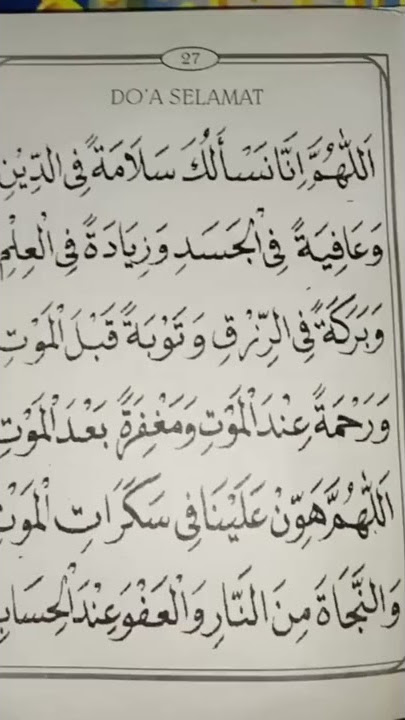 27
DO'A SELAMAT
اَللّٰهُمَّ اِنَّا نَسْأَلُكَ سَلَامَةً فِى الدِّيْنِ
وَعَافِيَةً فِى الْجَسَدِ وَزِيَادَةً فِى الْعِلْمِ
وَبَرَكَةً فِى الرِّزْقِ وَتَوْبَةً قَبْلَ الْمَوْتِ
وَرَحْمَةً عِنْدَ الْمَوْتِ وَمَغْفِرَةً بَعْدَ الْمَوْتِ
اَللّٰهُمَّ هَوِّنْ عَلَيْنَا فِى سَكَرَاتِ الْمَوْتِ
وَالنَّجَاةَ مِنَ النَّارِ وَالْعَفْوَ عِنْدَ الْحِسَابِ